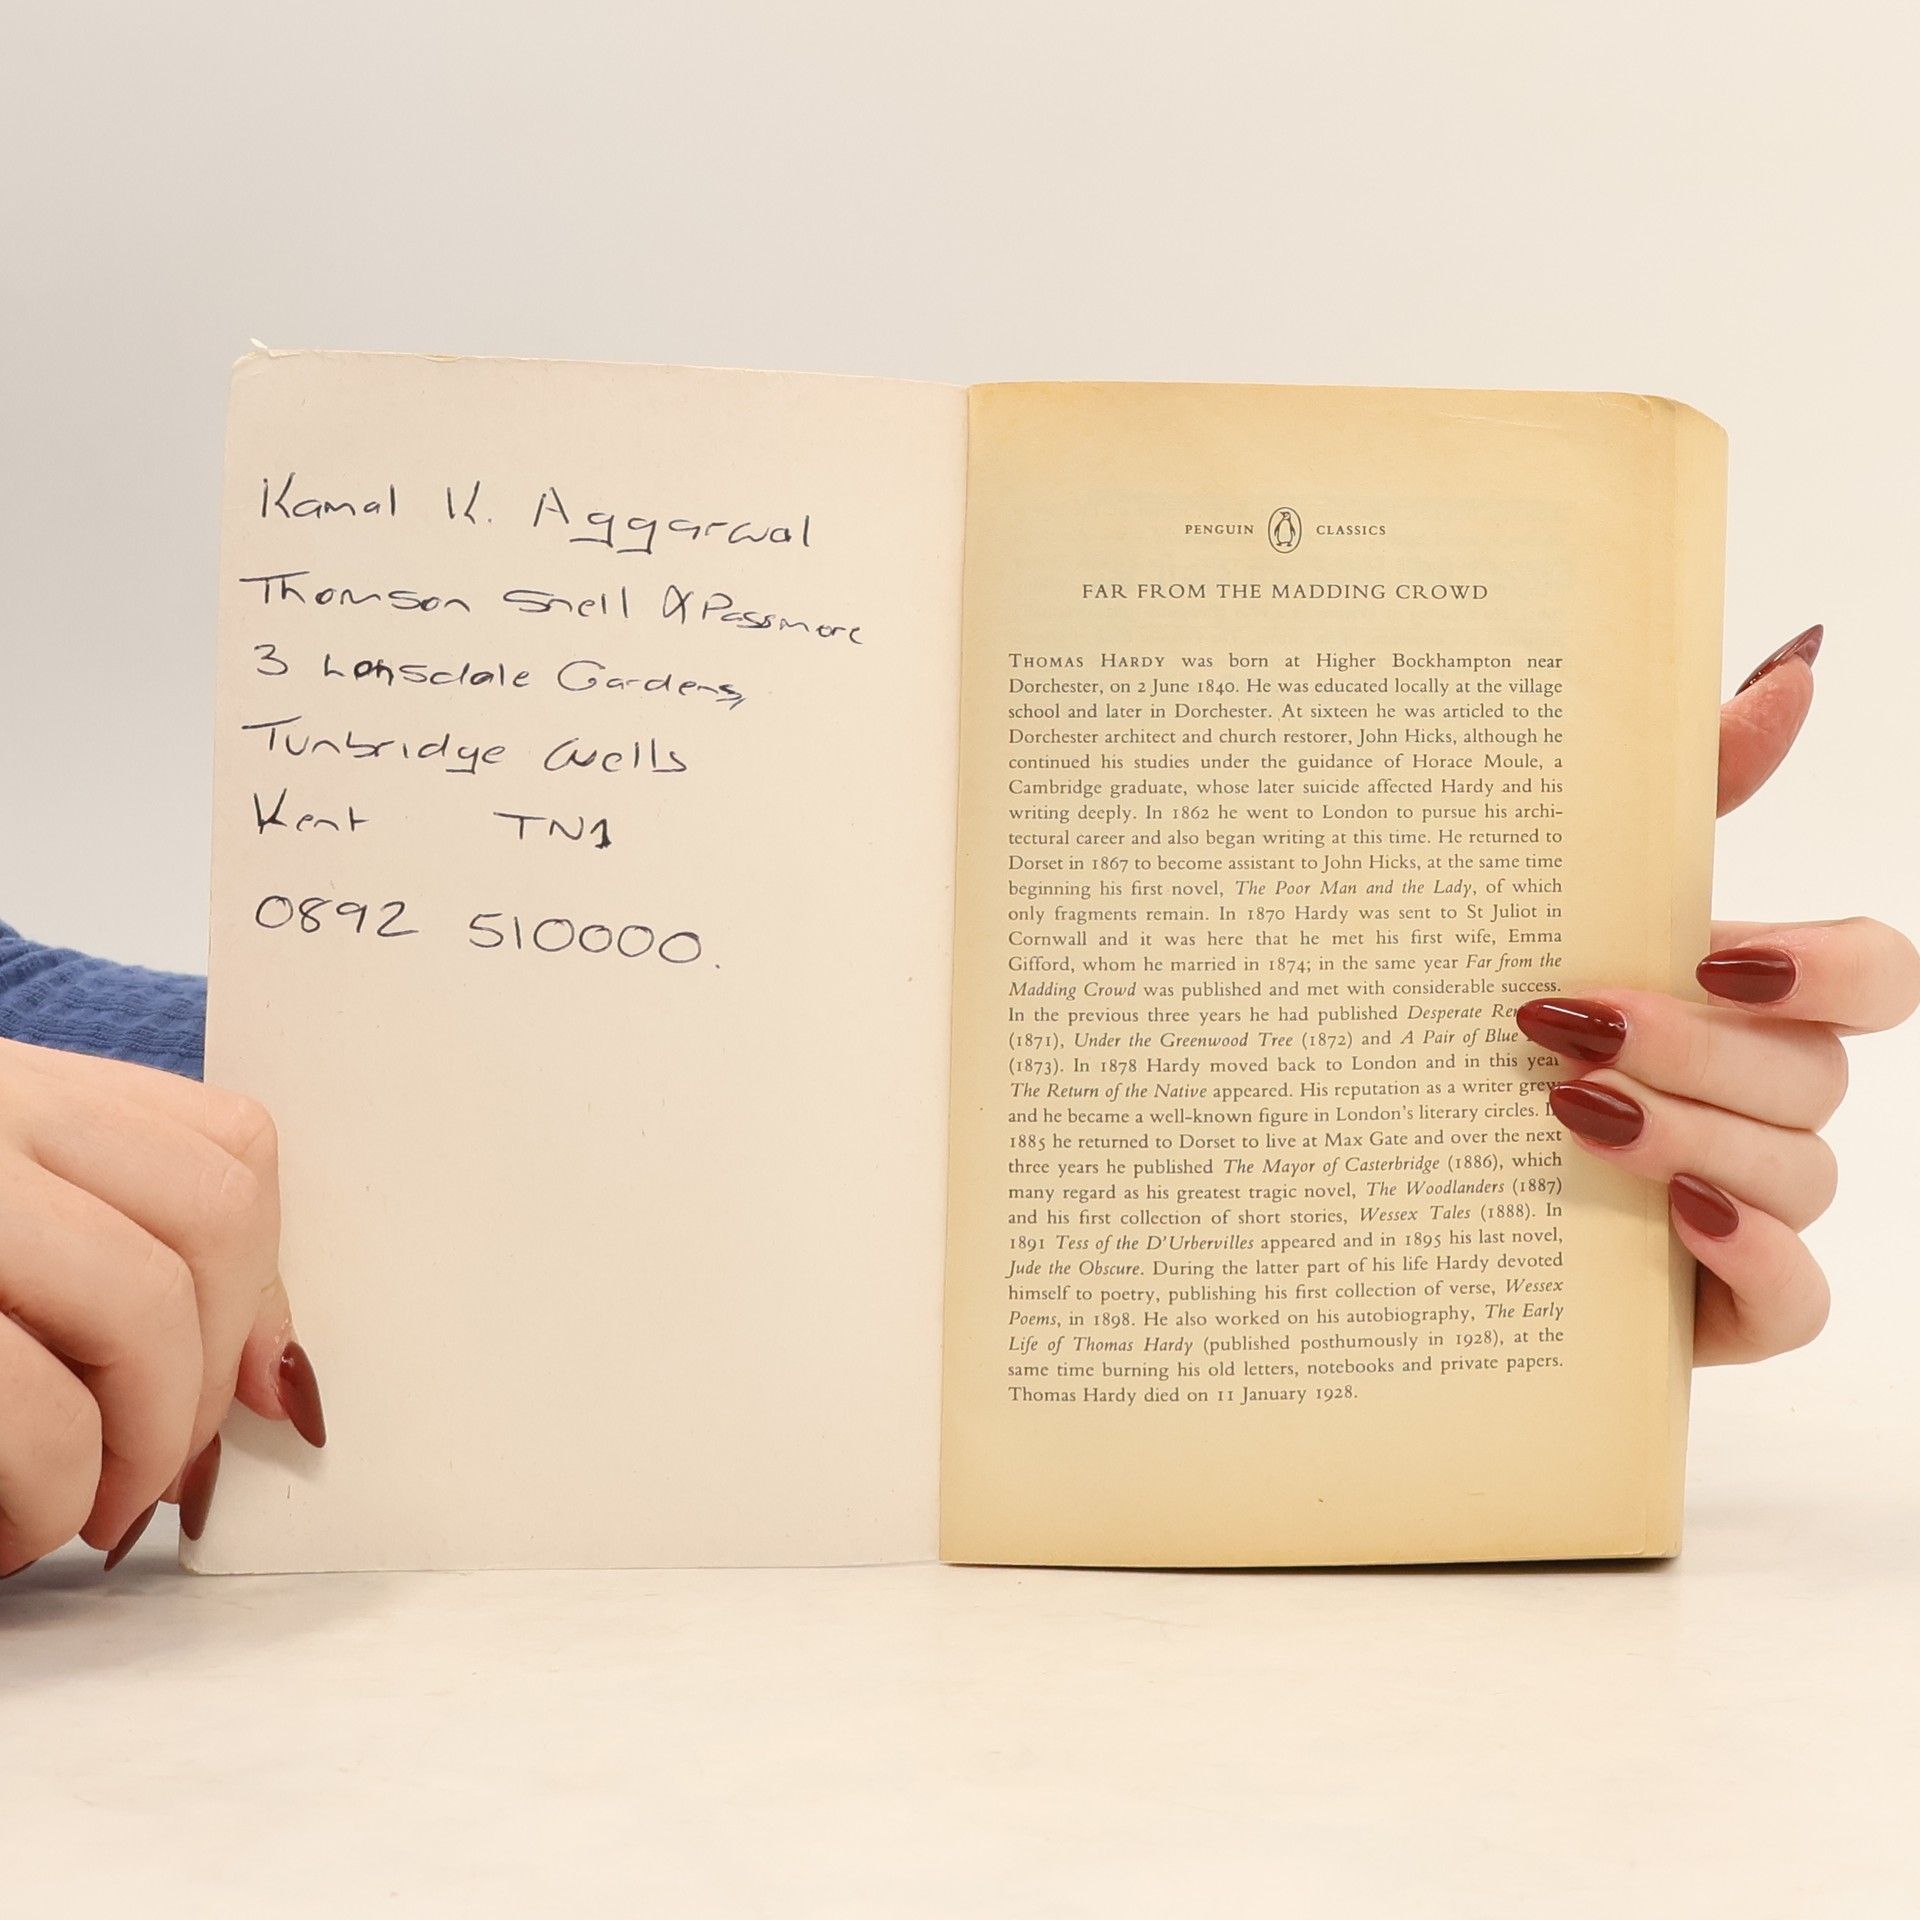 Kamal K. Aggarwal
Thomson Snell & Passmore
3 Lonsdale Gardens,
Tunbridge Wells
Kent TN1
0892 510000.
PENGUIN CLASSICS
FAR FROM THE MADDING CROWD
THOMAS HARDY was born at Higher Bockhampton near
Dorchester, on 2 June 1840. He was educated locally at the village
school and later in Dorchester. At sixteen he was articled to the
Dorchester architect and church restorer, John Hicks, although he
continued his studies under the guidance of Horace Moule, a
Cambridge graduate, whose later suicide affected Hardy and his
writing deeply. In 1862 he went to London to pursue his archi-
tectural career and also began writing at this time. He returned to
Dorset in 1867 to become assistant to John Hicks, at the same time
beginning his first novel, The Poor Man and the Lady, of which
only fragments remain. In 1870 Hardy was sent to St Juliot in
Cornwall and it was here that he met his first wife, Emma
Gifford, whom he married in 1874; in the same year Far from the
Madding Crowd was published and met with considerable success.
In the previous three years he had published Desperate
(1871), Under the Greenwood Tree (1872) and A Pair of Blue
(1873). In 1878 Hardy moved back to London and in this year
The Return of the Native appeared. His reputation as a writer grew
and he became a well-known figure in London's literary circles. In
1885 he returned to Dorset to live at Max Gate and over the next
three years he published The Mayor of Casterbridge (1886), which
many regard as his greatest tragic novel, The Woodlanders (1887)
and his first collection of short stories, Wessex Tales (1888). In
1891 Tess of the D'Urbervilles appeared and in 1895 his last novel,
Jude the Obscure. During the latter part of his life Hardy devoted
himself to poetry, publishing his first collection of verse, Wessex
Poems, in 1898. He also worked on his autobiography, The Early
Life of Thomas Hardy (published posthumously in 1928), at the
same time burning his old letters, notebooks and private papers.
Thomas Hardy died on 11 January 1928.